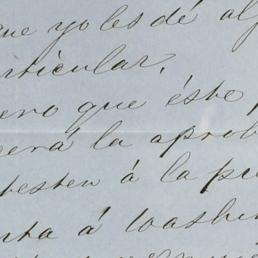 que yo les dé al
rticular.
ero que éste
erá la aprob
testen á la pu
nta á Washin